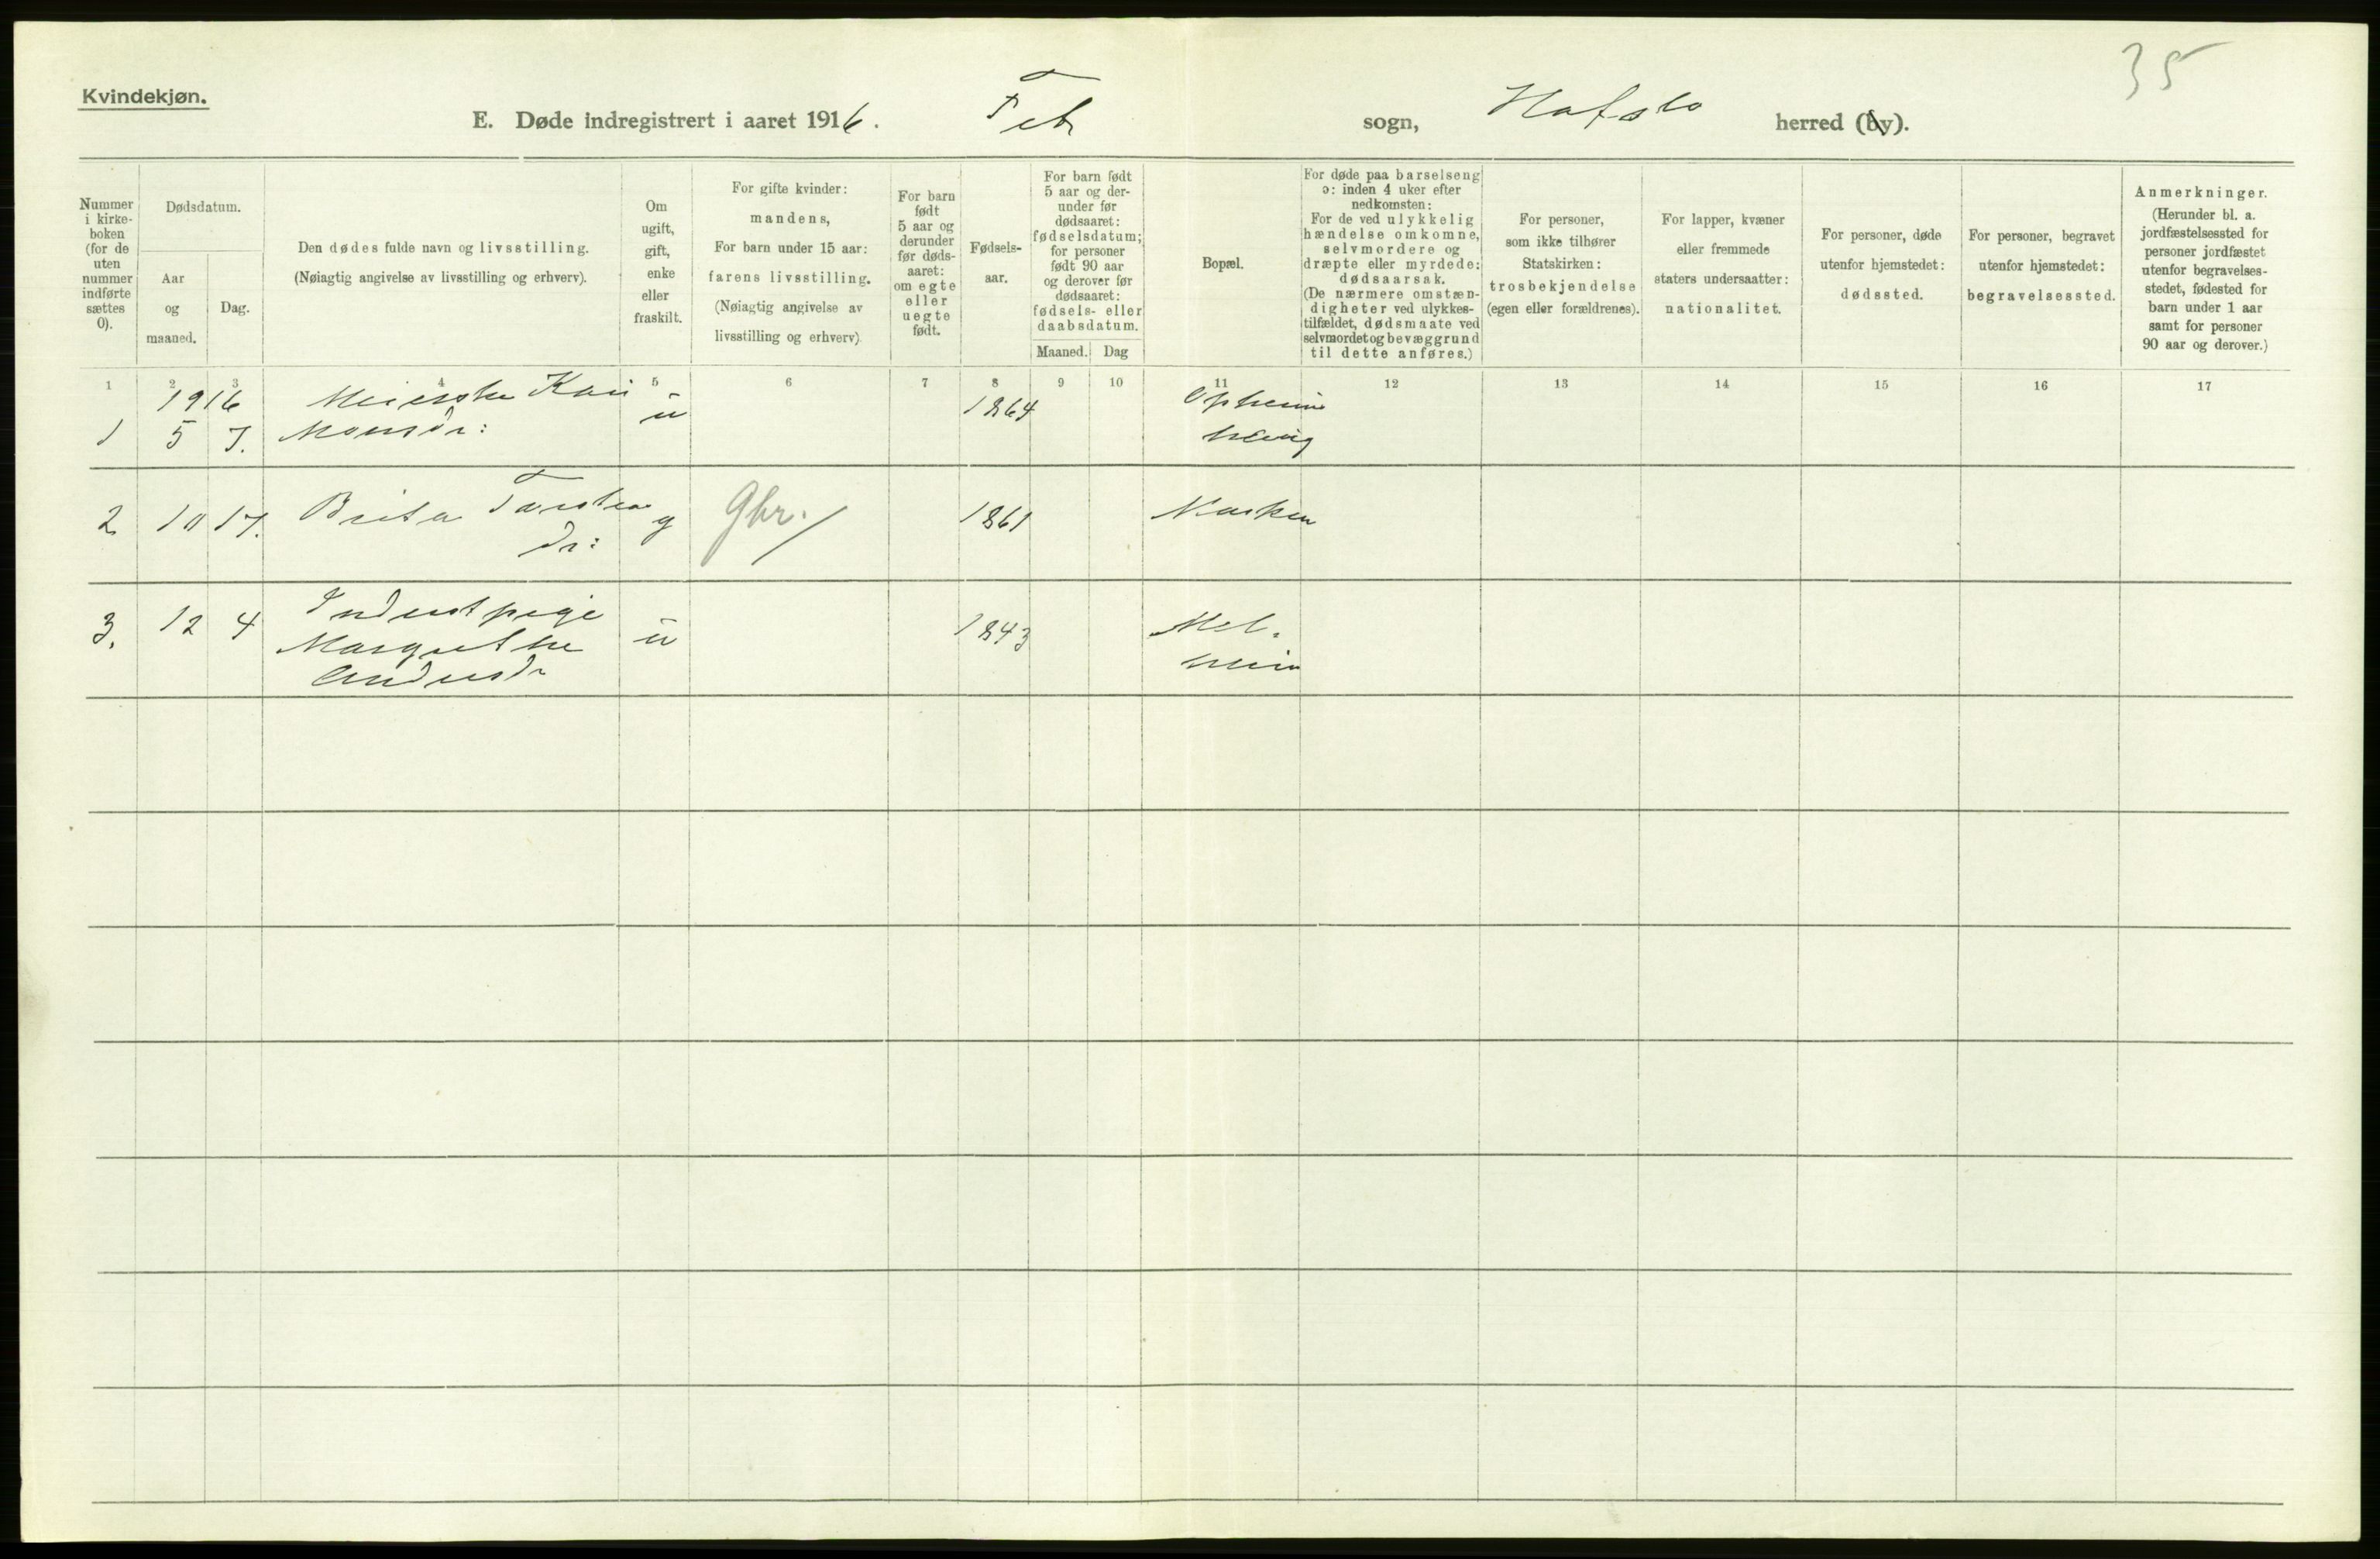 35
Kvindekjøn.
E. Døde indregistrert i aaret 1916. Fet sogn, Hafslo herred (by).
Nummer i kirke-boken (for de uten nummer indførte sættes 0).
Dødsdatum.
Aar og maaned.
Dag.
Den dødes fulde navn og livsstilling.
(Nøiagtig angivelse av livsstilling og erhverv).
Om ugift, gift, enke eller fraskilt.
For gifte kvinder:
mandens,
For barn under 15 aar:
farens livsstilling.
(Nøiagtig angivelse av
livsstilling og erhverv)
For barn født 5 aar og derunder før døds-aaret: om egte eller uegte født.
Fødsels-aar.
For barn født 5 aar og der-under før dødsaaret: fødselsdatum; for personer født 90 aar og derover før dødsaaret: fødsels- eller daabsdatum.
Maaned. Dag
Bopæl.
For døde paa barselseng ɔ: inden 4 uker efter nedkomsten:
For de ved ulykkelig hændelse omkomne, selvmordere og dræpte eller myrdede: dødsaarsak.
(De nærmere omstæn-digheter ved ulykkes-tilfældet, dødsmaate ved selvmordet og bevæggrund til dette anføres.)
For personer,
som ikke tilhører
Statskirken:
trosbekjendelse
(egen eller forældrenes).
For lapper, kvæner
eller fremmede
staters undersaatter:
nationalitet.
For personer, døde
utenfor hjemstedet:
dødssted.
For personer, begravet
utenfor hjemstedet:
begravelsessted.
Anmerkninger.
(Herunder bl. a.
jordfæstelsessted for
personer jordfæstet
utenfor begravelses-
stedet, fødested for
barn under 1 aar
samt for personer
90 aar og derover.)
1 2 3 4 5 6 7 8 9 10 11 12 13 14 15 16 17
1916 Meierske Kari u 1864 Opheim
1 5 7. Monsdr:
2 10 17. Brita Torstens g Gbr. 1861
dr:
3. 12 4 Inderstpige u 1843 Mel-
Margrethe heim
Andersdr